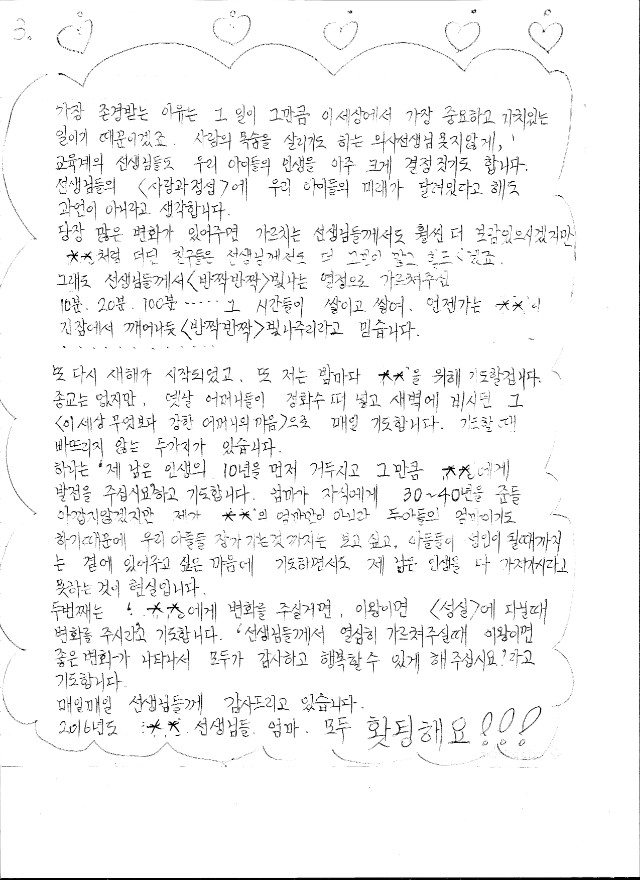 3.
가장 존경받는 이유는 그 일이 그만큼 이세상에서 가장 중요하고 가치있는
일이기 때문이겠죠. 사람의 목숨을 살리기도 하는 의사선생님 못지않게,
교육계의 선생님들도 우리 아이들의 인생을 아주 크게 결정 짓기도 합니다.
선생님들의 <사랑과 정성>에 우리 아이들의 미래가 달려있다고 해도
과언이 아니라고 생각합니다.
당장 많은 변화가 있어주면 가르치는 선생님들께서도 훨씬 더 보람있으시겠지만
**처럼 더딘 친구들은 선생님께서도 더
그래도 선생님들께서 <반짝반짝> 빛나는 열정으로 가르쳐주신
10분. 20분. 100분 ..... 그 시간들이 쌓이고 쌓여. 언젠가는 **이
긴잠에서 깨어나듯 <반짝반짝> 빛나주리라고 믿습니다.
또 다시 새해가 시작되었고, 또 저는 밤마다 **을 위해 기도할겁니다.
종교는 없지만, 옛날 어머니들이 정화수 떠 놓고 새벽에 비시던 그
<이 세상 무엇보다 강한 어머니의 마음>으로 매일 기도합니다. 기도할 때
빠뜨리지 않는 두가지가 있습니다.
하나는 '제 남은 인생의 10년을 먼저 거두시고 그만큼 **에게
발전을 주십시요'하고 기도합니다. 엄마가 자식에게 30~40년을 준들
아깝지않겠지만 제가 **의 엄마만이 아니라 두아들의 엄마이기도
하기때문에 우리 아들들 장가 가는것 까지는 보고 싶고, 아들들이 성인이 될때까지
는 곁에 있어주고 싶은 마음에 기도하면서도 제 남은 인생을 다 가져가시라고
못하는 것이 현실입니다.
두번째는 '**에게 변화를 주실거면, 이왕이면 <성실>에 다닐때
변화를 주시라'고 기도합니다. '선생님들께서 열심히 가르쳐주실때 이왕이면
좋은 변화가 나타나서 모두가 감사하고 행복할 수 있게 해주십시요?'라고
기도합니다.
매일매일 선생님들께 감사드리고 있습니다.
2016년도 ** 선생님들. 엄마. 모두 홧팅해요!!!